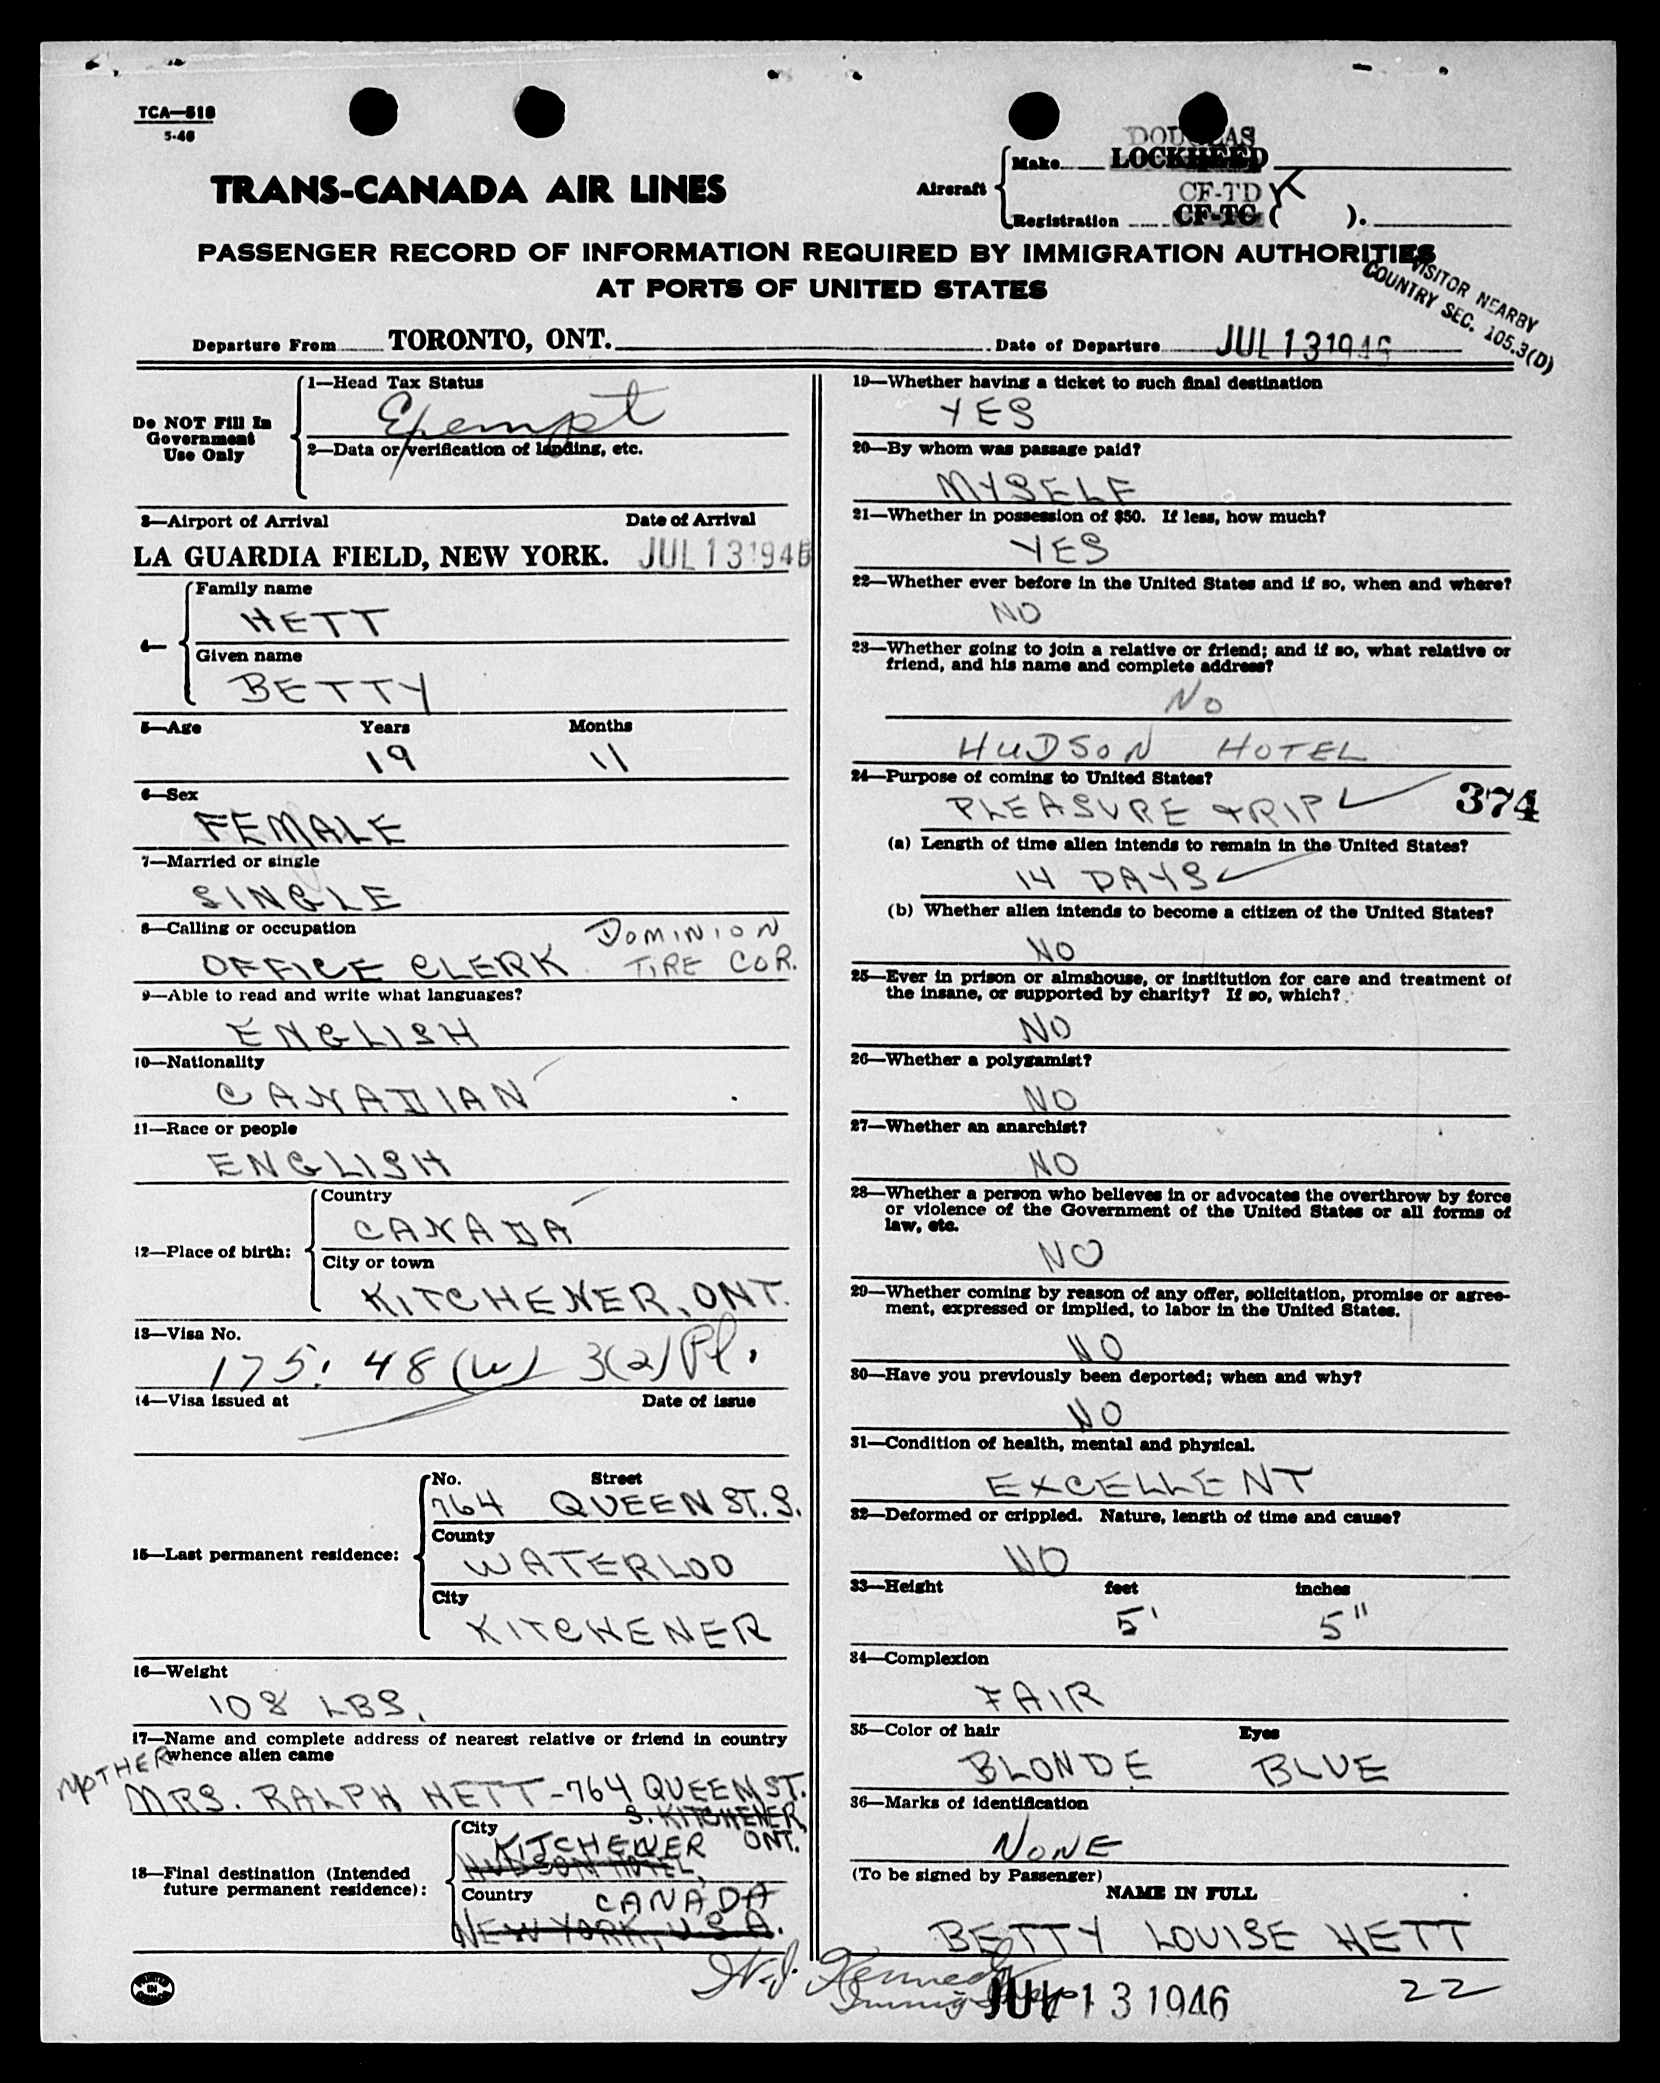 TCA—518
5-46
TRANS-CANADA AIR LINES
Aircraft
Make
DOUGLAS
LOCKHEED
CF-TD K
Registration CF-TC ( ).
PASSENGER RECORD OF INFORMATION REQUIRED BY IMMIGRATION AUTHORITIES
AT PORTS OF UNITED STATES
VISITOR NEARBY
COUNTRY SEC. 105.3(D)
Departure From TORONTO, ONT. Date of Departure JUL 13 1946
Do NOT Fill In
Government
Use Only
1—Head Tax Status
Exempt
2—Data or verification of landing, etc.
3—Airport of Arrival Date of Arrival
LA GUARDIA FIELD, NEW YORK. JUL 13 1946
4—
Family name
HETT
Given name
BETTY
5—Age Years Months
19 11
6—Sex
FEMALE
7—Married or single
SINGLE
8—Calling or occupation
DOMINION
OFFICE CLERK TIRE COR.
9—Able to read and write what languages?
ENGLISH
10—Nationality
CANADIAN
11—Race or people
ENGLISH
12—Place of birth:
Country
CANADA
City or town
KITCHENER, ONT.
13—Visa No.
175: 48 (w) 3(2) Pl.
14—Visa issued at Date of issue
15—Last permanent residence:
No. Street
764 QUEEN ST. S.
County
WATERLOO
City
KITCHENER
16—Weight
108 LBS.
17—Name and complete address of nearest relative or friend in country
whence alien came
MOTHER
MRS. RALPH HETT - 764 QUEEN ST.
S. KITCHENER
ONT.
18—Final destination (Intended
future permanent residence):
City
KITCHENER
HUDSON HOTEL,
Country CANADA
NEW YORK, U.S.A.
19—Whether having a ticket to such final destination
YES
20—By whom was passage paid?
MYSELF
21—Whether in possession of $50. If less, how much?
YES
22—Whether ever before in the United States and if so, when and where?
NO
23—Whether going to join a relative or friend; and if so, what relative or
friend, and his name and complete address?
NO
HUDSON HOTEL
24—Purpose of coming to United States?
PLEASURE TRIP
374
(a) Length of time alien intends to remain in the United States?
14 DAYS
(b) Whether alien intends to become a citizen of the United States?
NO
25—Ever in prison or almshouse, or institution for care and treatment of
the insane, or supported by charity? If so, which?
NO
26—Whether a polygamist?
NO
27—Whether an anarchist?
NO
28—Whether a person who believes in or advocates the overthrow by force
or violence of the Government of the United States or all forms of
law, etc.
NO
29—Whether coming by reason of any offer, solicitation, promise or agree-
ment, expressed or implied, to labor in the United States.
NO
30—Have you previously been deported; when and why?
NO
31—Condition of health, mental and physical.
EXCELLENT
32—Deformed or crippled. Nature, length of time and cause?
NO
33—Height feet inches
5' 5"
34—Complexion
FAIR
35—Color of hair Eyes
BLONDE BLUE
36—Marks of identification
NONE
(To be signed by Passenger)
NAME IN FULL
BETTY LOUISE HETT
Kennedy
JUL 13 1946
22